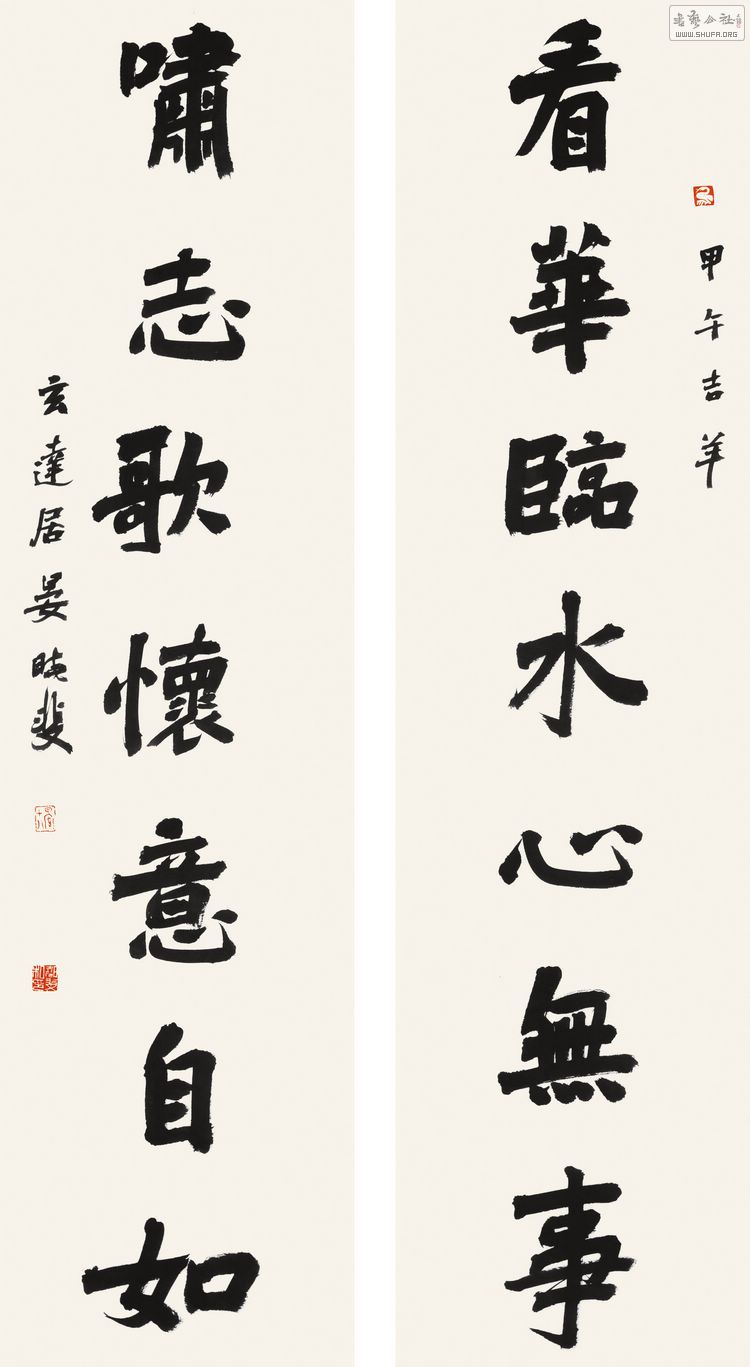 甲午吉羊
看華臨水心無事
嘯志歌懷意自如
玄達居晏晓斐
書藝公社
WWW.SHUFA.ORG